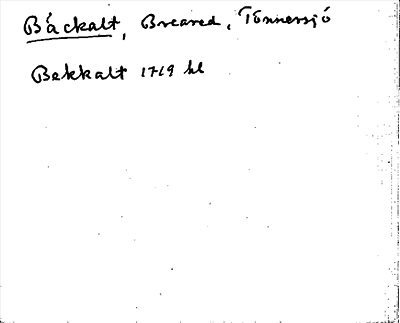 Bäckalt, Breared, Tönnersjö
Bekkalt 1719 hl